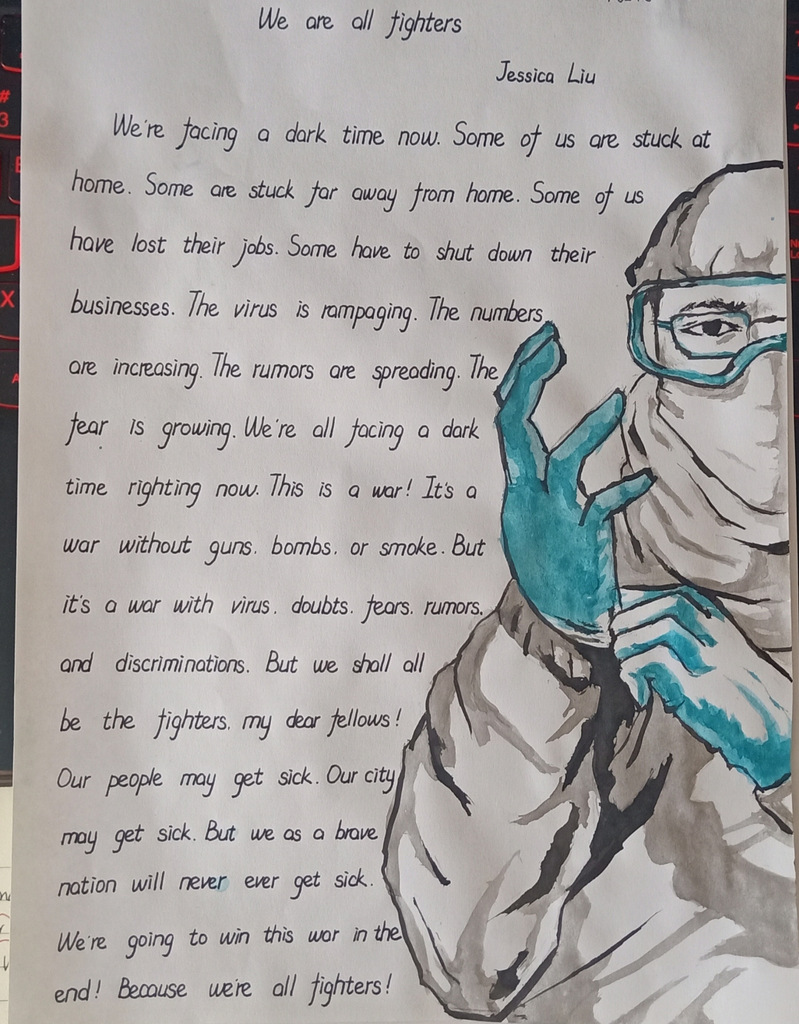 We are all fighters
Jessica Liu
We're facing a dark time now. Some of us are stuck at
home. Some are stuck far away from home. Some of us
have lost their jobs. Some have to shut down their
businesses. The virus is rampaging. The numbers
are increasing. The rumors are spreading. The
fear is growing. We're all facing a dark
time righting now. This is a war! It's a
war without guns. bombs. or smoke. But
it's a war with virus. doubts. fears. rumors.
and discriminations. But we shall all
be the fighters. my dear fellows!
Our people may get sick. Our city
may get sick. But we as a brave
nation will never ever get sick.
We're going to win this war in the
end! Because we're all fighters!